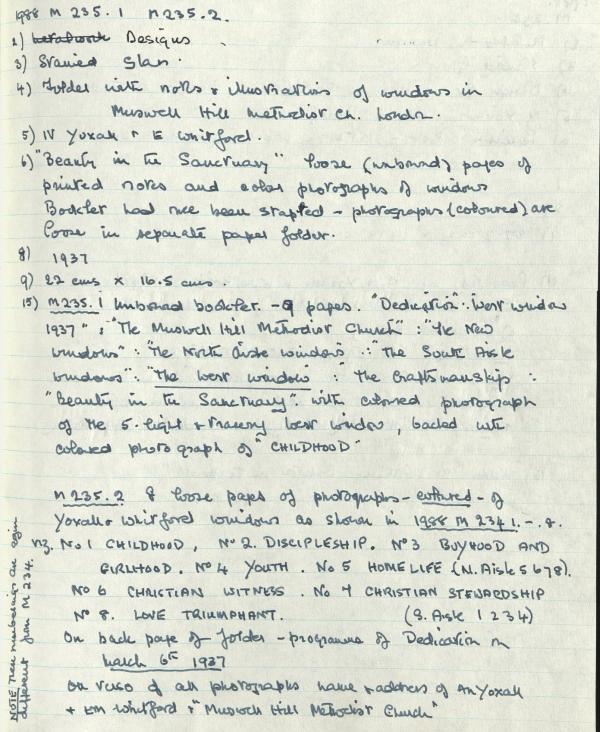 1988 M 235.1 M 235.2.
1) Designs
3) Stained Glass.
4) Folder with notes & illustrations of windows in
Muswell Hill Methodist Ch. London.
5) IV Yoxall & E Whitford.
6) "Beauty in the Sanctuary" loose (unbound) pages of
printed notes and color photographs of windows
Booklet had once been stapled - photographs (coloured) are
loose in separate paper folder.
8) 1937
9) 22 cms x 16.5 cms.
15) M235.1 Unbound booklet. - 9 pages. "Dedication": West window
1937"; "The Muswell Hill Methodist Church": "The New
windows": "The North Aisle windows": "The South Aisle
windows": "The West window": The Craftsmanship:
"Beauty in the Sanctuary": with coloured photograph
of the 5-light & tracery West window, backed with
colored photograph of "CHILDHOOD"
M235.2 8 loose pages of photographs - coloured - of
Yoxall & Whitford windows as shown in 1988 M 234 1. - . 8.
viz. No 1 CHILDHOOD. No 2. DISCIPLESHIP. No 3 BUYHOOD AND
GIRLHOOD. No 4 YOUTH. No 5 HOME LIFE (N. Aisle 5 6 7 8).
No 6 CHRISTIAN WITNESS. No 7 CHRISTIAN STEWARDSHIP
No 8. LOVE TRIUMPHANT. (S. Aisle 1 2 3 4)
On back page of folder - programme of Dedication on
March 6th 1937
On verso of all photographs name & address of Yoxall
& EM Whitford & "Muswell Hill Methodist Church"
NOTE These numberings are again
different from M 234.